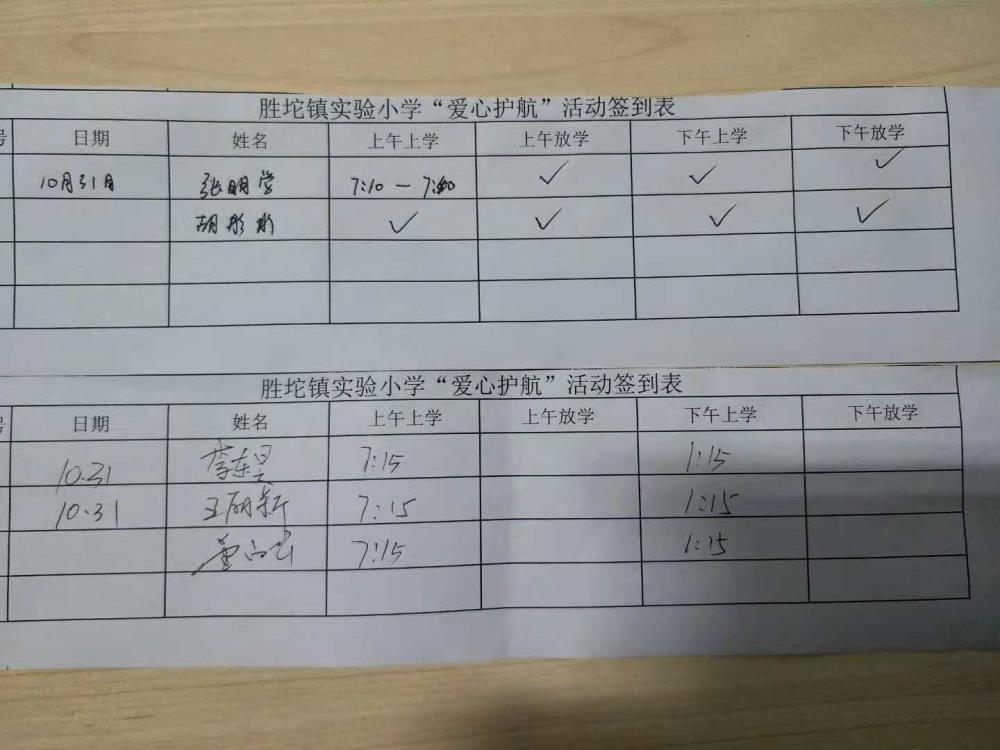 胜坨镇实验小学“爱心护航”活动签到表
号 日期 姓名 上午上学 上午放学 下午上学 下午放学
10月31日 张明学 7:10 — 7:40 ✓ ✓ ✓
胡彤彤 ✓ ✓ ✓ ✓
胜坨镇实验小学“爱心护航”活动签到表
号 日期 姓名 上午上学 上午放学 下午上学 下午放学
10.31 李东昊 7:15 1:15
10.31 王丽新 7:15 1:15
7:15 1:15